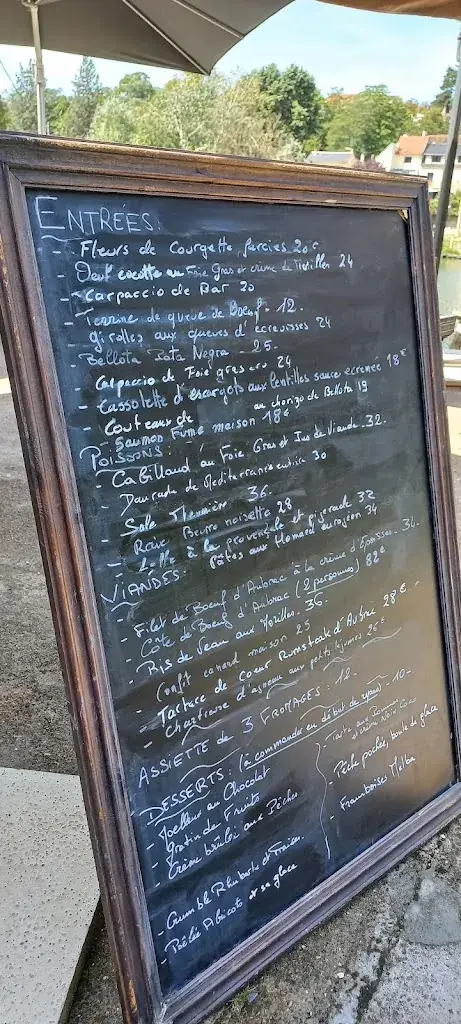 ENTRÉES:
- Fleurs de Courgette farcies 20€
- Oeuf cocotte au Foie Gras et crème de Morilles 24
- Carpaccio de Bar 20
- Terrine de queue de Boeuf - 12.
- girolles aux queues d'écrevisses 24
- Bellota Pata Negra - 25 -
- Carpaccio de Foie gras cru 24
- Cassolette d'escargots aux lentilles sauce écrémée 18€
- Couteaux de au chorizo de Bellota 19
- Saumon Fumé maison 18€
POISSONS:
- Cabillaud au Foie Gras et Jus de Viande. 32.
- Daurade de Méditerranée entière 30
- Sole Meunière 36.
- Raie Beurre noisette 28
- Lotte à la provençale et pigerade 32
- Pâtes aux Homard européen 34
VIANDES:
- Filet de Boeuf d'Aubrac à la crème d'Epoisses - 34.
- Côte de Boeuf d'Aubrac (2 personnes) 82€
- Ris de Veau aux Morilles - 36.
- Confit canard maison 25
- Tartare de Coeur Rumsteak d'Aubrac 28€ -
- Chartreuse d'agneau aux petits légumes 26€
ASSIETTE de 3 FROMAGES: 12.
DESSERTS: (à commander en début de repas) - 10 -
- Moelleux au Chocolat
- Gratin de Fruits
- Crème brulée aux Pêches
- Crumble Rhubarbe et Fraises
- Poêlée Abricots et sa glace
- Tarte aux Pommes
et crème Noix Coco
- Pêche pochée, boule de glace
- Framboises Melba